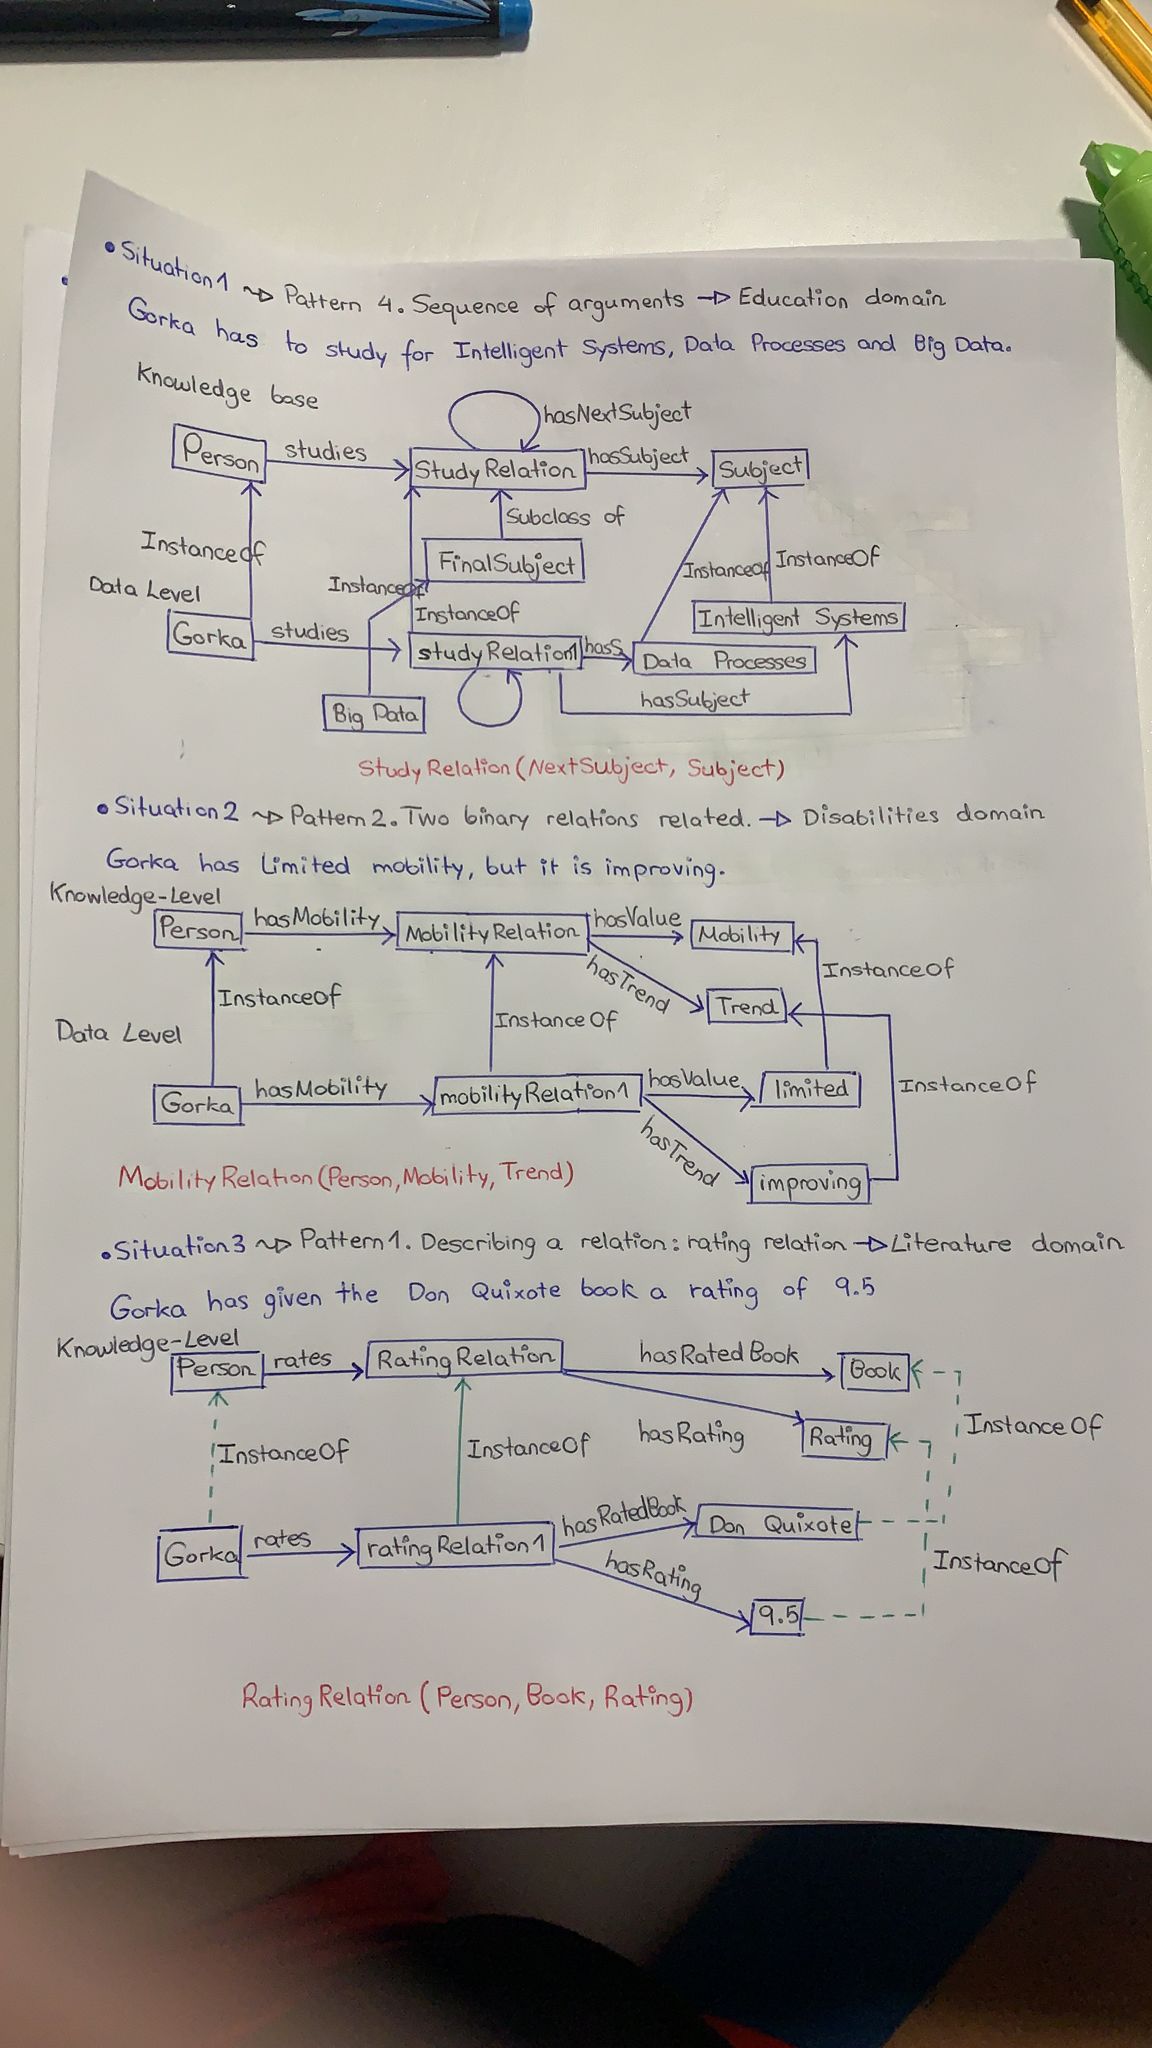 •Situation1 ⤳ Pattern 4. Sequence of arguments → Education domain
Gorka has to study for Intelligent Systems, Data Processes and Big Data.
Knowledge base
hasNextSubject
Person studies StudyRelation hasSubject Subject
Subclass of
InstanceOf FinalSubject InstanceOf InstanceOf
Data Level InstanceOf
InstanceOf Intelligent Systems
Gorka studies studyRelation1 hasS Data Processes
Big Data hasSubject
StudyRelation (NextSubject, Subject)
•Situation2 ⤳ Pattern 2. Two binary relations related. → Disabilities domain
Gorka has Limited mobility, but it is improving.
Knowledge-Level
Person hasMobility MobilityRelation hasValue Mobility
hasTrend InstanceOf
InstanceOf Trend
Data Level InstanceOf
Gorka hasMobility mobilityRelation1 hasValue limited InstanceOf
hasTrend
MobilityRelation (Person, Mobility, Trend) improving
•Situation3 ⤳ Pattern 1. Describing a relation: rating relation → Literature domain
Gorka has given the Don Quixote book a rating of 9.5
Knowledge-Level
Person rates RatingRelation hasRatedBook Book
InstanceOf InstanceOf hasRating Rating InstanceOf
Gorka rates ratingRelation1 hasRatedBook Don Quixote
hasRating InstanceOf
9.5
RatingRelation (Person, Book, Rating)